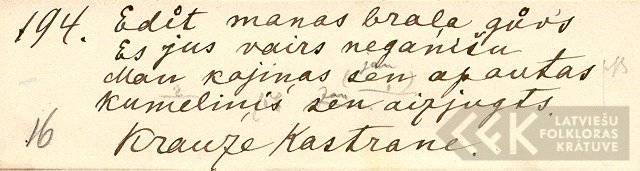 194. Edåt manas brala gåvs
Es jus vairs neganišu
Man kajiņas sen apautas
Kumeliņš sen aizjugts
16 Krauze Kastrane.
LATVIEŠU
FOLKLORAS
KRĀTUVE